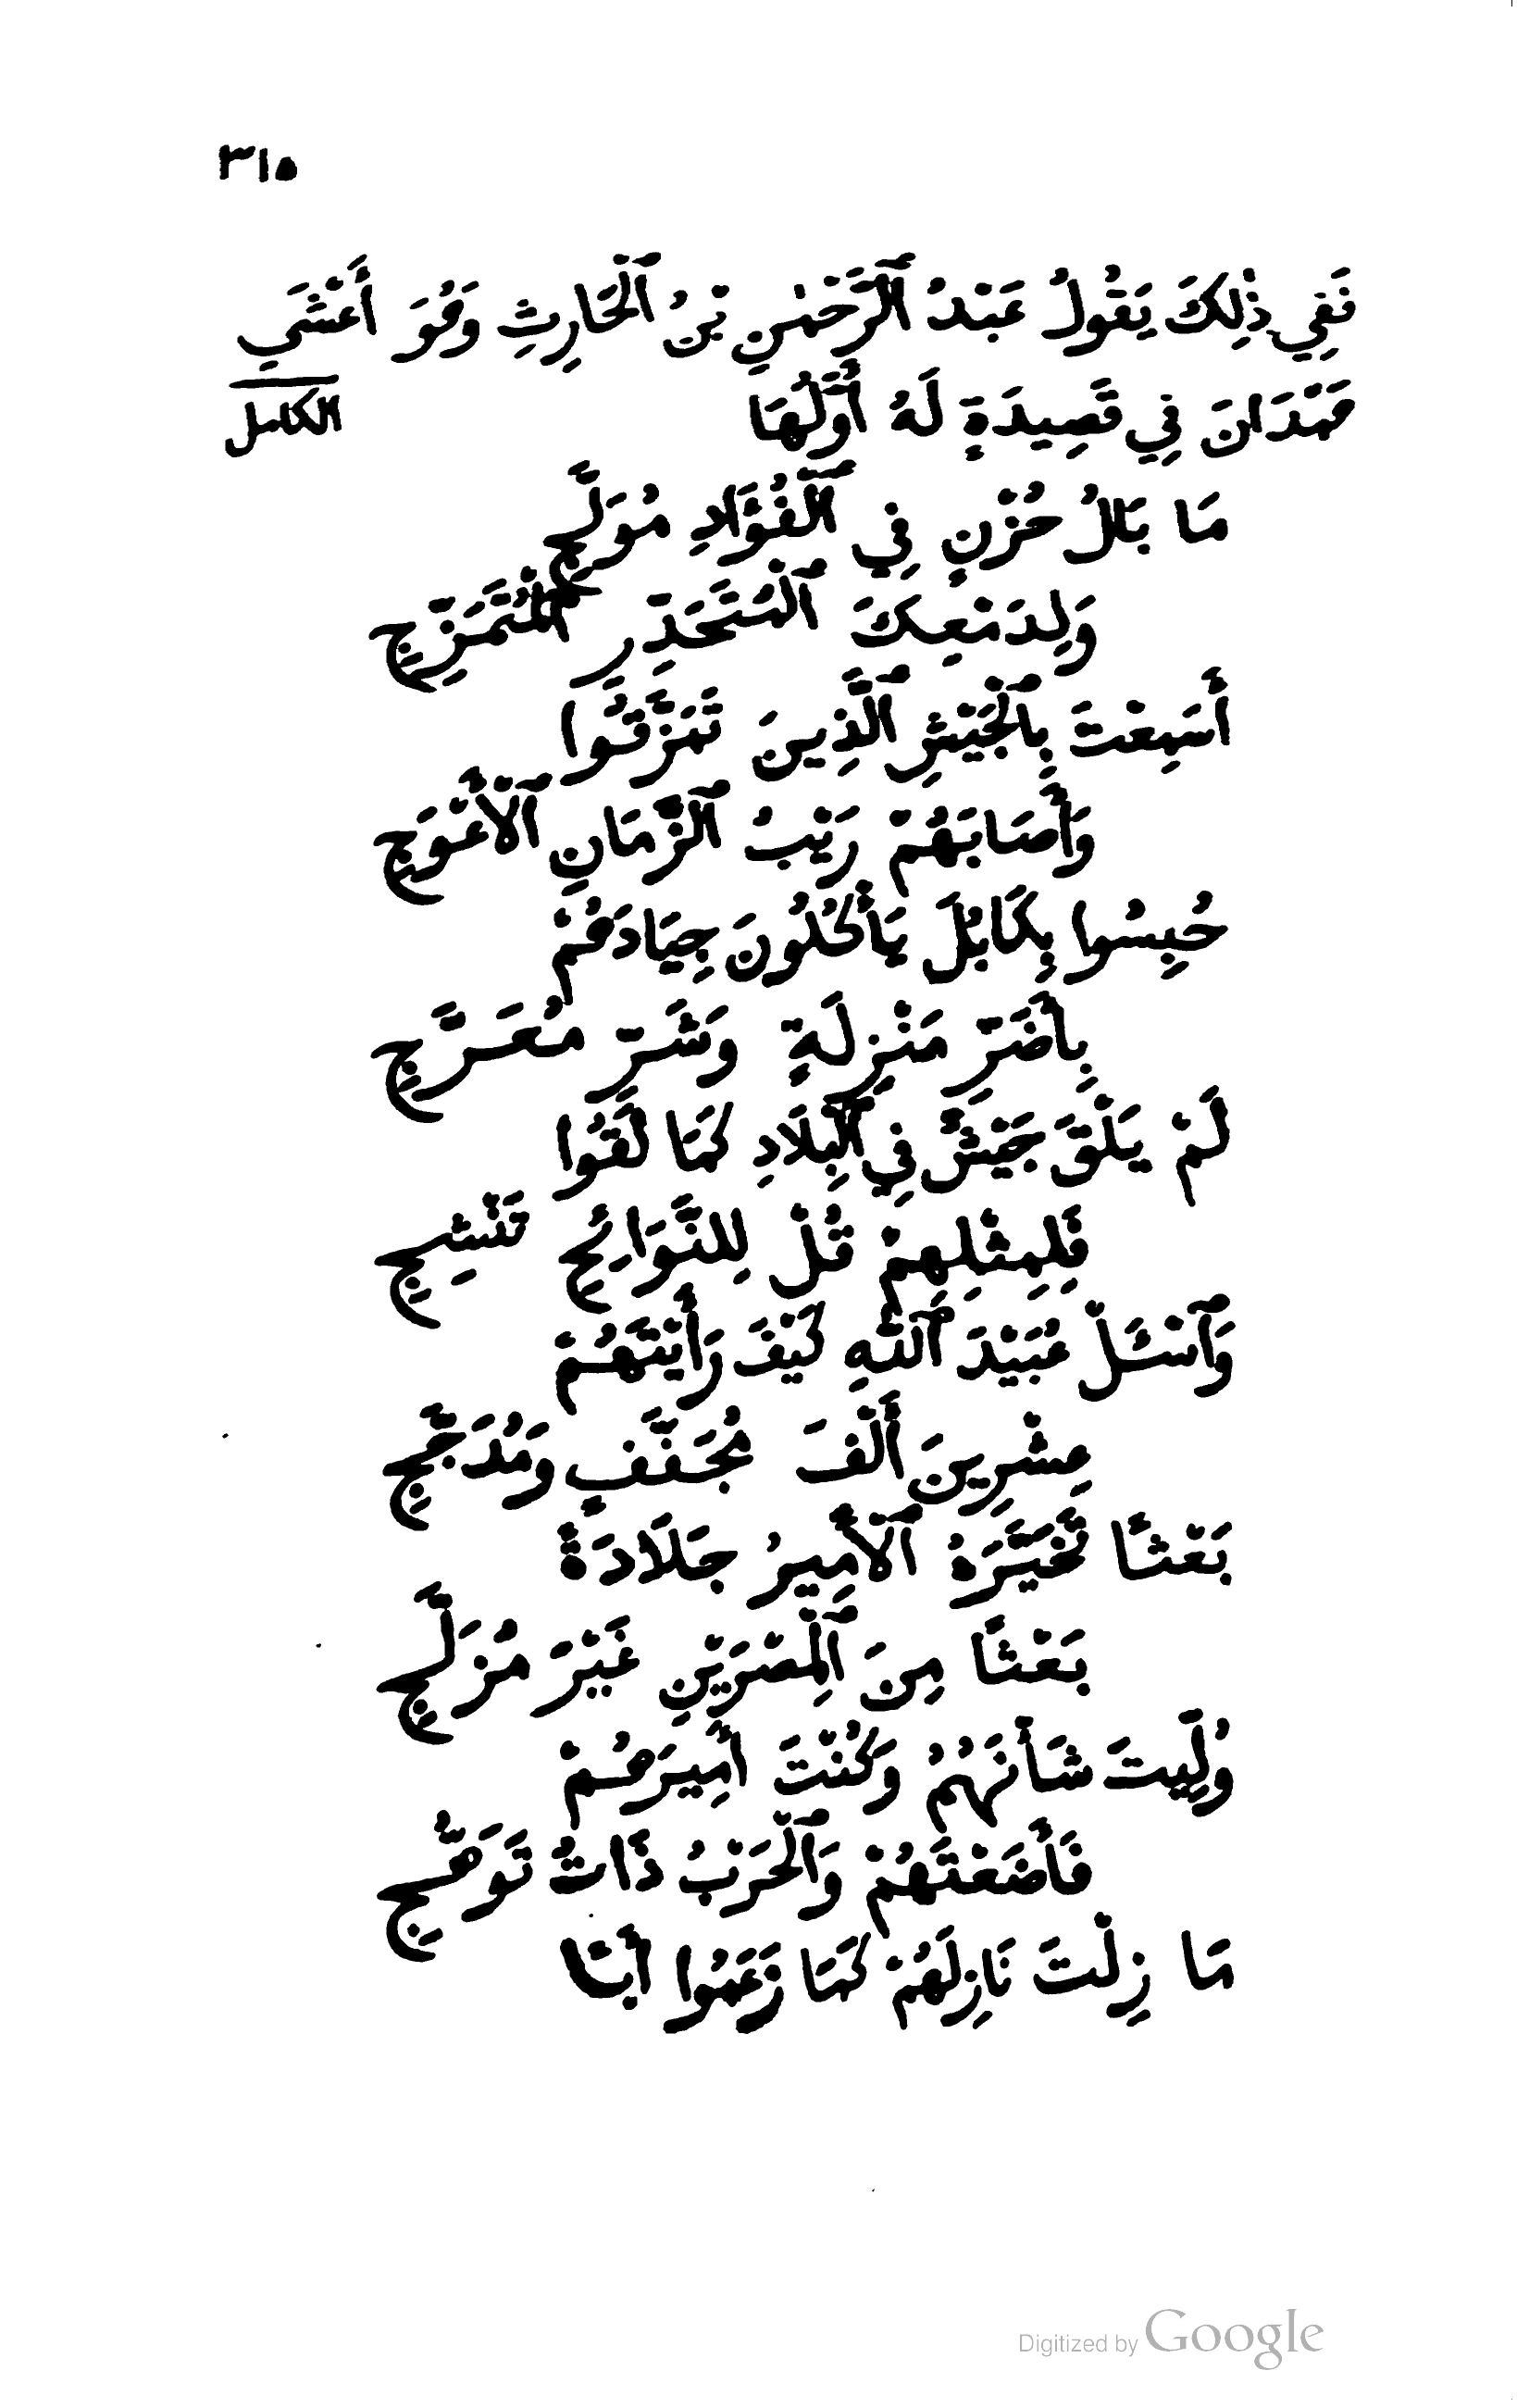 ٣١٥
فَفِي ذٰلِكَ يَقُولُ عَبْدُ ٱلرَّحْمٰنِ بْنُ ٱلْحَارِثِ وَهُوَ أَعْشَى
هَمْدَانَ فِي قَصِيدَةٍ لَهُ أَوَّلُهَا الكامل
مَا بَالُ حُزْنٍ فِي ٱلْفُؤَادِ مُوَلَّجِ
وَلِدَمْعِكَ ٱلْمُتَحَدِّرِ ٱلْمُتَمَزِّجِ
أَسَمِعْتَ بِٱلْجَيْشِ ٱلَّذِينَ تَمَزَّقُوا
وَأَصَابَهُمْ رَيْبُ ٱلزَّمَانِ ٱلْأَعْوَجِ
حُبِسُوا بِكَابُلَ يَأْكُلُونَ جِيَادَهُمْ
بِأَضَرِّ مَنْزِلَةٍ وَشَرِّ مُعَرَّجِ
لَمْ يَلْقَ جَيْشٌ فِي ٱلْبِلَادِ كَمَا لَقُوا
فَلِمِثْلِهِمْ قُلْ لِلنَّوَائِحِ تَنْشِجِ
وَٱسْئَلْ عُبَيْدَ ٱللّٰهِ كَيْفَ رَأَيْتَهُمْ
عِشْرِينَ أَلْفَ مُجَفَّفٍ وَمُدَجَّجِ
بَعْثًا تَخَيَّرَهُ ٱلْأَمِيرُ جَلَادَةً
بَعْثًا مِنَ ٱلْمِصْرَيْنِ غَيْرَ مُزَلَّجِ
وُلِّيتَ شَأْنَهُمُ وَكُنْتَ أَمِيرَهُمْ
فَأَضَعْتَهُمْ وَٱلْحَرْبُ ذَاتُ تَوَهُّجِ
مَا زِلْتَ نَازِلَهُمْ كَمَا زَعَمُوا أَبًا
Digitized by Google